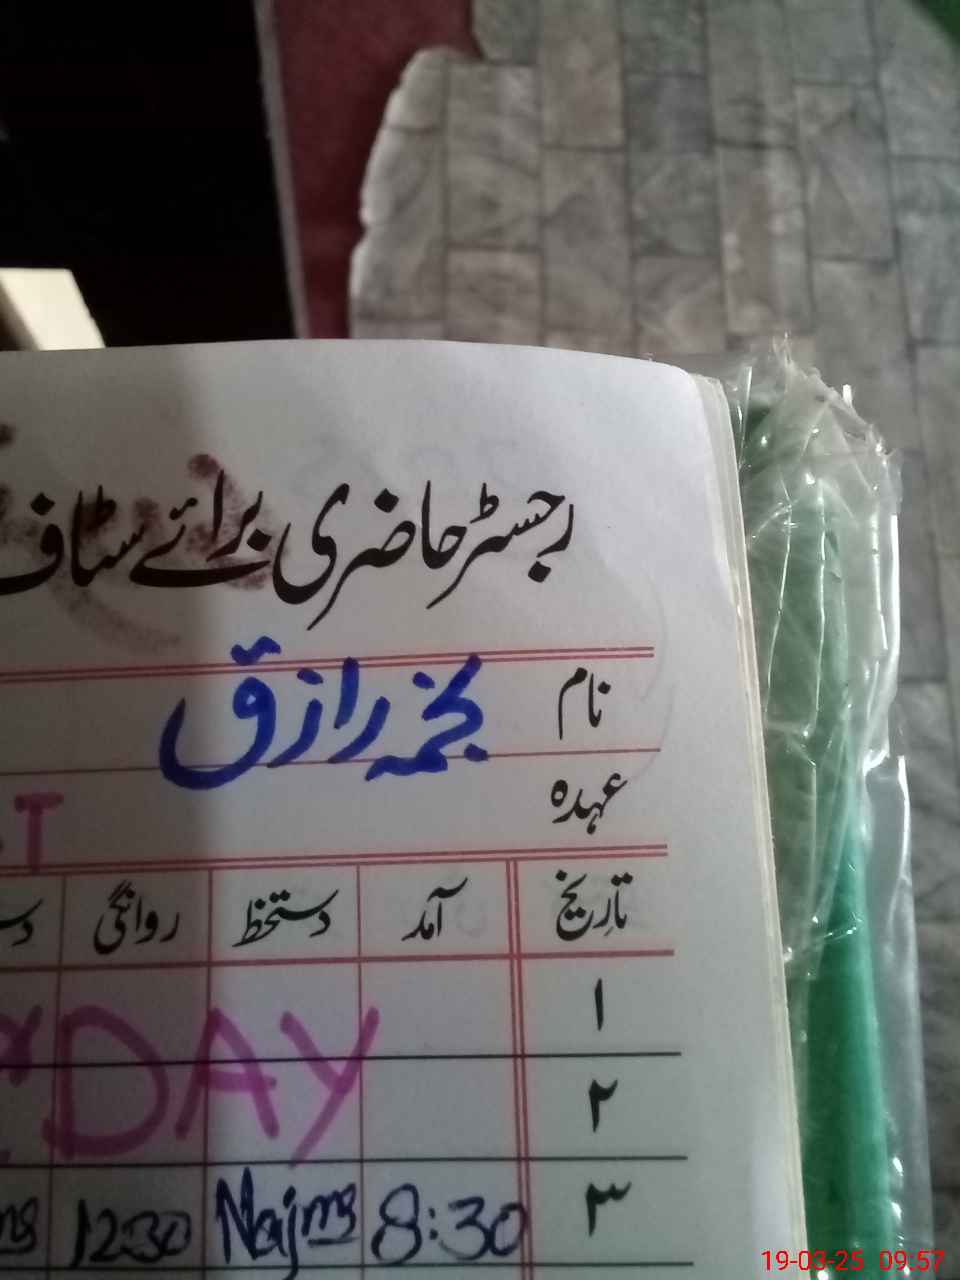 رجسٹر حاضری برائے سٹاف
نام نجمہ رازق
عہدہ
تاریخ آمد دستخط روانگی
۱
۲
DAY
۳ 8:30 Najma 1230
19-03-25 09:57